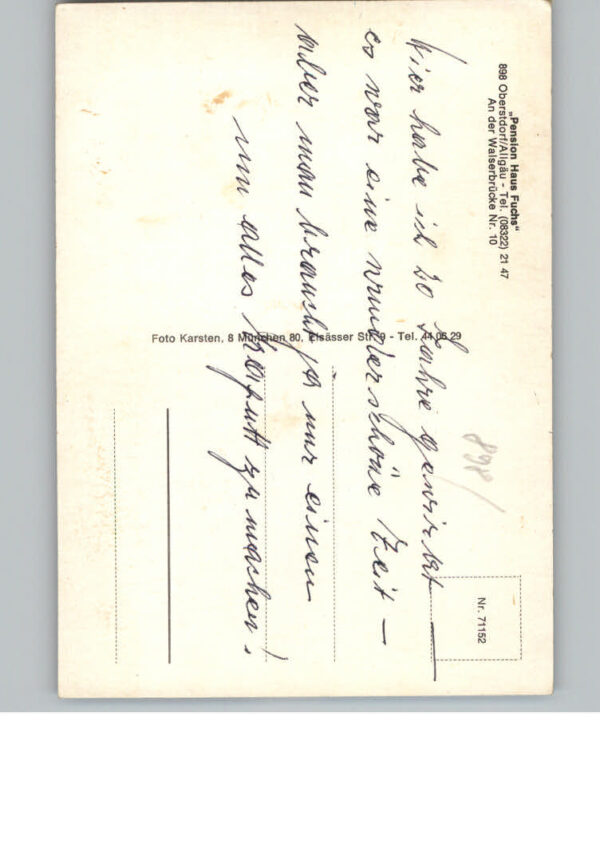 „Pension Haus Fuchs"
898 Oberstdorf/Allgäu - Tel. (08322) 21 47
An der Walserbrücke Nr. 10
Hier habe ich 20 Jahre gewirkt —
es war eine wunderschöne Zeit —
aber man braucht ja nur einen
um alles kaputt zu machen!
Foto Karsten, 8 München 80, Elsässer Str. - Tel. 44 06 29
898/
Nr. 71152